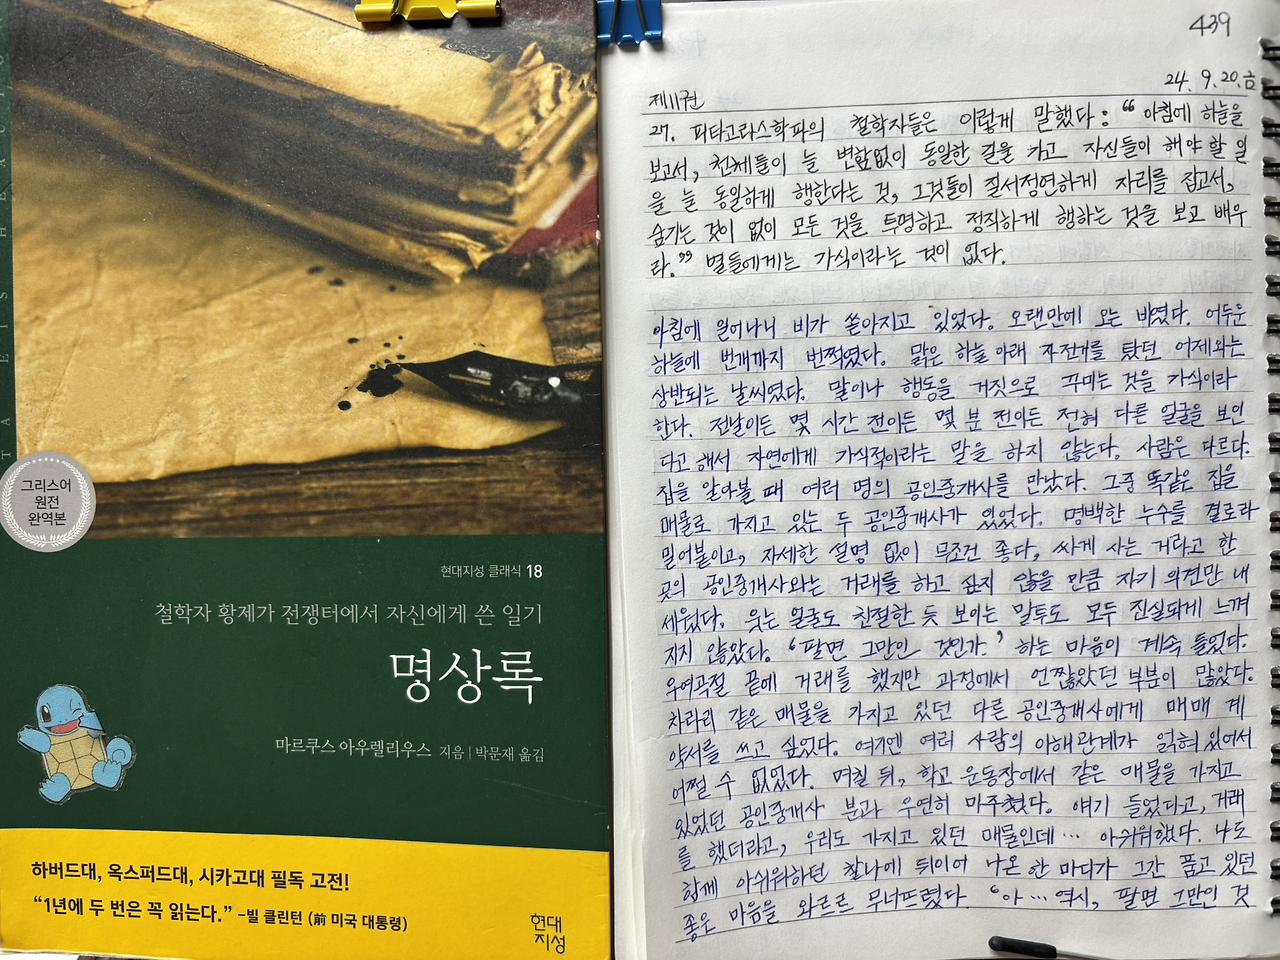 그리스어
원전
완역본
현대지성 클래식 18
철학자 황제가 전쟁터에서 자신에게 쓴 일기
명상록
마르쿠스 아우렐리우스 지음 | 박문재 옮김
하버드대, 옥스퍼드대, 시카고대 필독 고전!
“1년에 두 번은 꼭 읽는다.” –빌 클린턴 (前 미국 대통령)
현대
지성
439
24. 9. 20. 금
제11권
27. 피타고라스학파의 철학자들은 이렇게 말했다: “아침에 하늘을
보고서, 천체들이 늘 변함없이 동일한 길을 가고 자신들이 해야 할 일
을 늘 동일하게 행한다는 것, 그것들이 질서정연하게 자리를 잡고서,
숨기는 것이 없이 모든 것을 투명하고 정직하게 행하는 것을 보고 배우
라.” 별들에게는 가식이라는 것이 없다.
아침에 일어나니 비가 쏟아지고 있었다. 오랜만에 오는 비였다. 어두운
하늘에 번개까지 번쩍였다. 맑은 하늘 아래 자전거를 탔던 어제와는
상반되는 날씨였다. 말이나 행동을 거짓으로 꾸미는 것을 가식이라
한다. 전날이든 몇 시간 전이든 몇 분 전이든 전혀 다른 얼굴을 보인
다고 해서 자연에게 가식적이라는 말을 하지 않는다. 사람은 다르다.
집을 알아볼 때 여러 명의 공인중개사를 만났다. 그중 똑같은 집을
매물로 가지고 있는 두 공인중개사가 있었다. 명백한 누수를 결로라
밀어붙이고, 자세한 설명 없이 무조건 좋다, 싸게 사는 거라고 한
곳의 공인중개사와는 거래를 하고 싶지 않을 만큼 자기 의견만 내
세웠다. 웃는 얼굴도 친절한 듯 보이는 말투도 모두 진실되게 느껴
지지 않았다. ‘팔면 그만인 것인가.’ 하는 마음이 계속 들었다.
우여곡절 끝에 거래를 했지만 과정에서 언짢았던 부분이 많았다.
차라리 같은 매물을 가지고 있던 다른 공인중개사에게 매매 계
약서를 쓰고 싶었다. 여기엔 여러 사람의 이해관계가 얽혀 있어서
어쩔 수 없었다. 며칠 뒤, 학교 운동장에서 같은 매물을 가지고
있었던 공인중개사 분과 우연히 마주쳤다. 얘기 들었다고, 거래
를 했더라고, 우리도 가지고 있던 매물인데… 아쉬워했다. 나도
함께 아쉬워하던 찰나에 뒤이어 나온 한 마디가 그간 품고 있던
좋은 마음을 와르르 무너뜨렸다. “아… 역시, 팔면 그만인 것